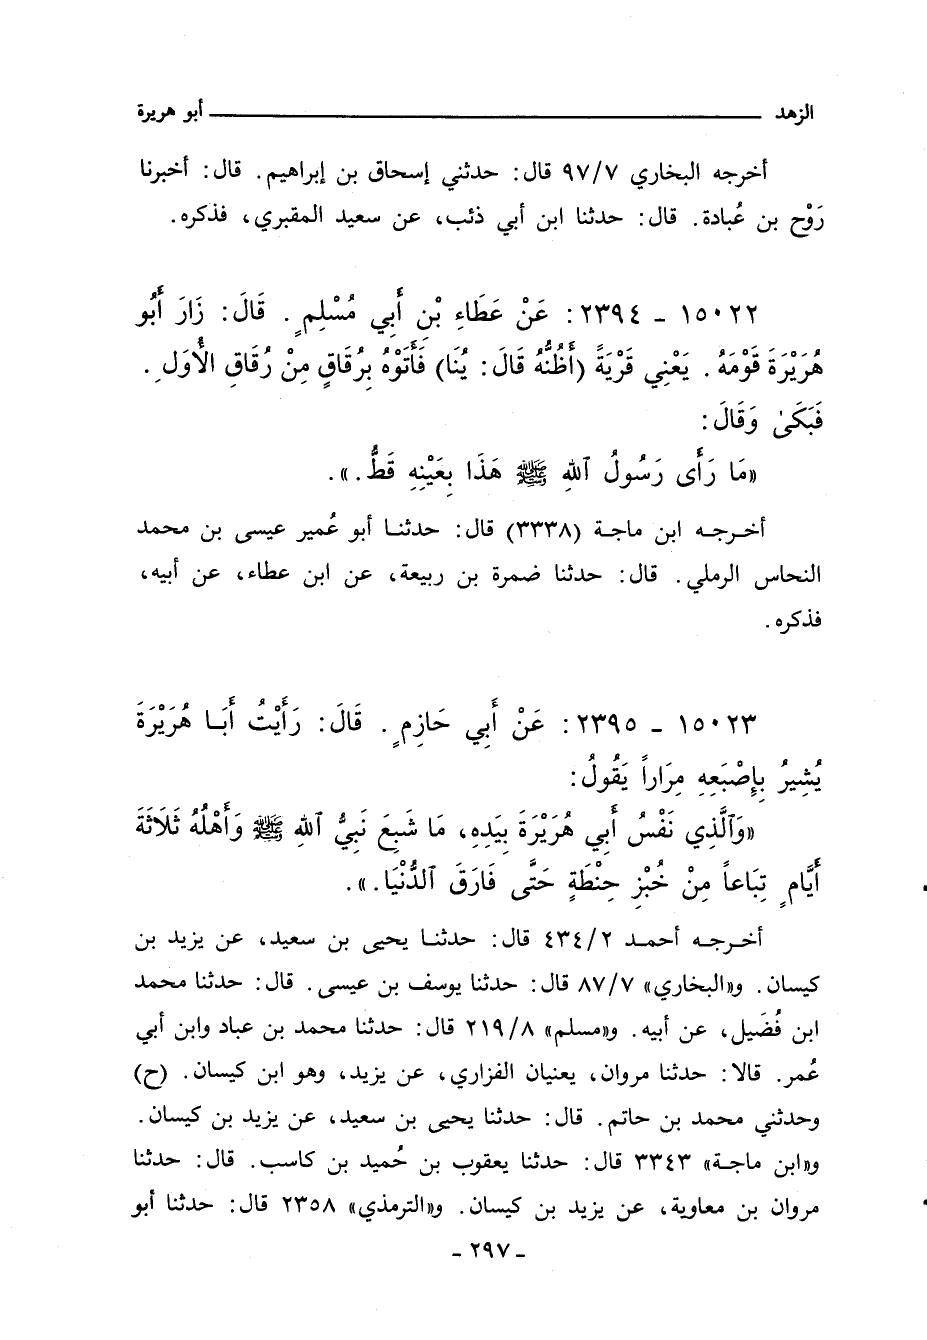 الزهد ــــــــــــــــــــــــــــــــ أبو هريرة
أخرجه البخاري ٩٧/٧ قال: حدثني إسحاق بن إبراهيم. قال: أخبرنا
رَوْح بن عُبادة. قال: حدثنا ابن أبي ذئب، عن سعيد المقبري، فذكره.
١٥٠٢٢ - ٢٣٩٤: عَنْ عَطَاءِ بْنِ أَبِي مُسْلِمٍ. قَالَ: زَارَ أَبُو
هُرَيْرَةَ قَوْمَهُ. يَعْنِي قَرْيَةً (أَظُنُّهُ قَالَ: يُنَا) فَأَتَوْهُ بِرُقَاقٍ مِنْ رُقَاقِ الْأُوَلِ.
فَبَكَىٰ وَقَالَ:
«مَا رَأَى رَسُولُ ٱللهِ ﷺ هَذَا بِعَيْنِهِ قَطُّ.».
أخرجه ابن ماجة (٣٣٣٨) قال: حدثنا أبو عُمير عيسى بن محمد
النحاس الرملي. قال: حدثنا ضمرة بن ربيعة، عن ابن عطاء، عن أبيه،
فذكره.
١٥٠٢٣ - ٢٣٩٥: عَنْ أَبِي حَازِمٍ. قَالَ: رَأَيْتُ أَبَا هُرَيْرَةَ
يُشِيرُ بِإِصْبَعِهِ مِرَاراً يَقُولُ:
«وَٱلَّذِي نَفْسُ أَبِي هُرَيْرَةَ بِيَدِهِ، مَا شَبِعَ نَبِيُّ ٱللهِ ﷺ وَأَهْلُهُ ثَلَاثَةَ
أَيَّامٍ تِبَاعاً مِنْ خُبْزِ حِنْطَةٍ حَتَّى فَارَقَ ٱلدُّنْيَا.».
أخرجه أحمد ٤٣٤/٢ قال: حدثنا يحيى بن سعيد، عن يزيد بن
كيسان. و«البخاري» ٨٧/٧ قال: حدثنا يوسف بن عيسى. قال: حدثنا محمد
ابن فُضَيل، عن أبيه. و«مسلم» ٢١٩/٨ قال: حدثنا محمد بن عباد وابن أبي
عُمر. قالا: حدثنا مروان، يعنيان الفزاري، عن يزيد، وهو ابن كيسان. (ح)
وحدثني محمد بن حاتم. قال: حدثنا يحيى بن سعيد، عن يزيد بن كيسان.
و«ابن ماجة» ٣٣٤٣ قال: حدثنا يعقوب بن حُميد بن كاسب. قال: حدثنا
مروان بن معاوية، عن يزيد بن كيسان. و«الترمذي» ٢٣٥٨ قال: حدثنا أبو
- ٢٩٧ -